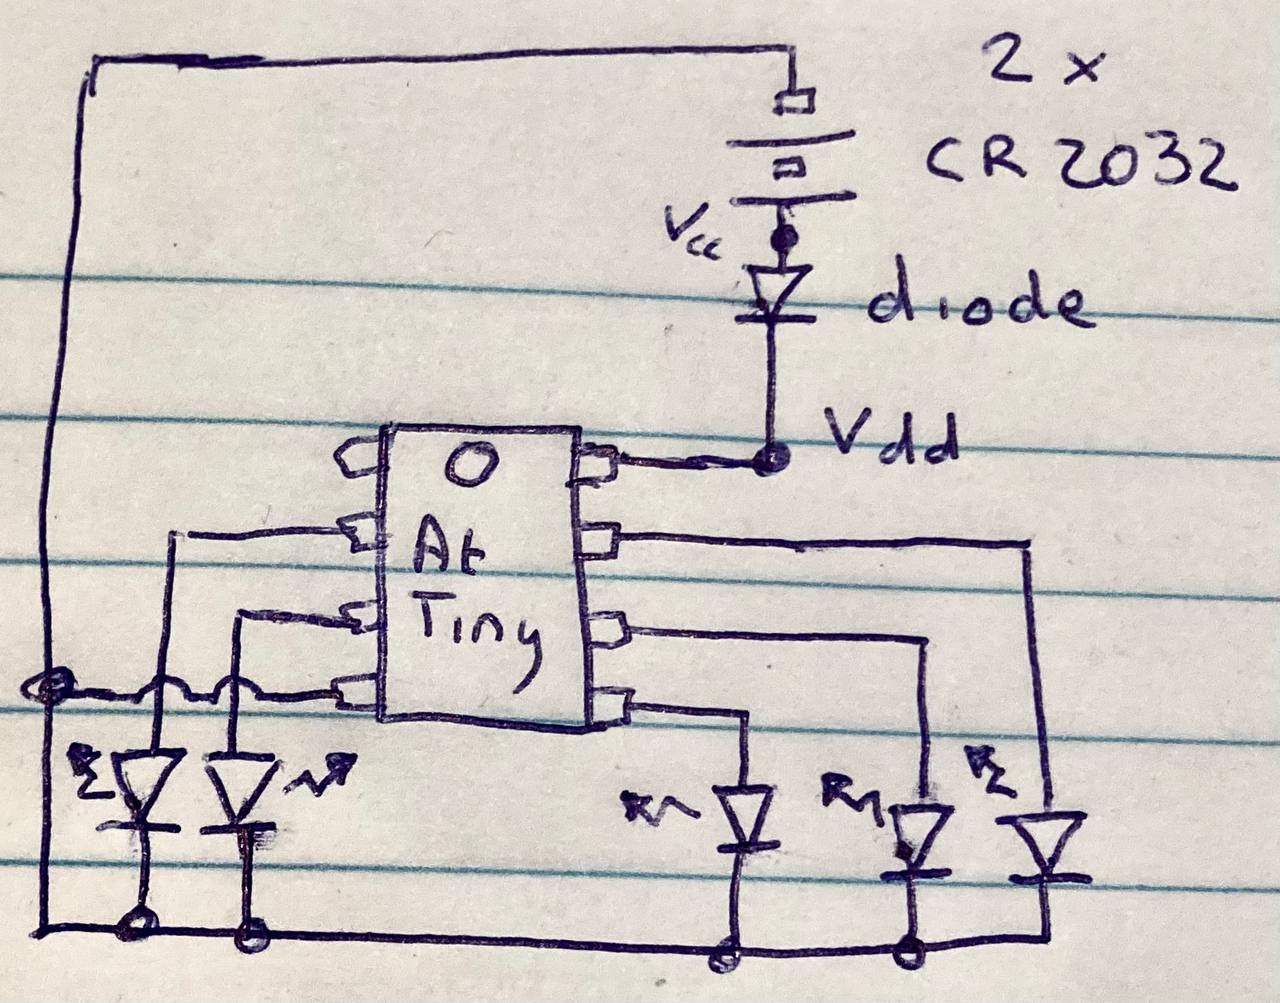 2 x
CR 2032
Vcc
diode
Vdd
At
Tiny